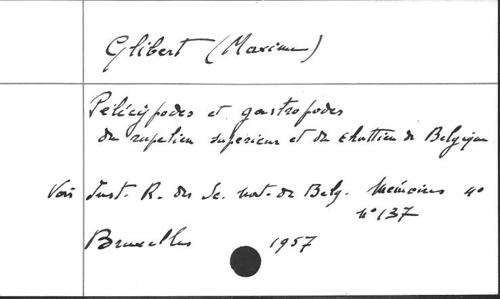 Glibert (Maxime)
Pélécypodes et gastropodes
du rupélien supérieur et du chattien de Belgique
Voir Inst. R. des Sc. nat. de Belg. Mémoires 4°
n° 137
Bruxelles 1957